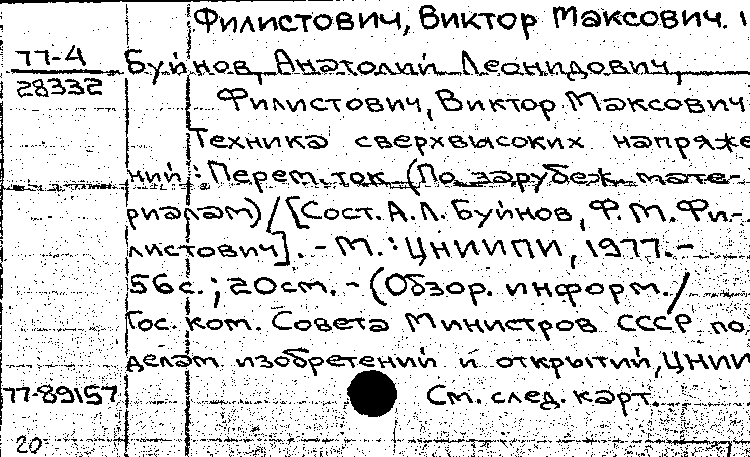 Филистович, Виктор Максович.
77-4
28332
Буйнов, Анатолий Леонидович,
Филистович, Виктор Максович
Техника сверхвысоких напряже
ний : Перем. ток (По зарубеж. мате-
риалам) / [Сост. А. Л. Буйнов, Ф. М. Фи-
листович]. - М. : ЦНИИПИ, 1977. -
56с. ; 20см. - (Обзор. информ. /
Гос. ком. Совета Министров СССР по
делам изобретений и открытий, ЦНИИ
77-89157
См. след. карт.
20